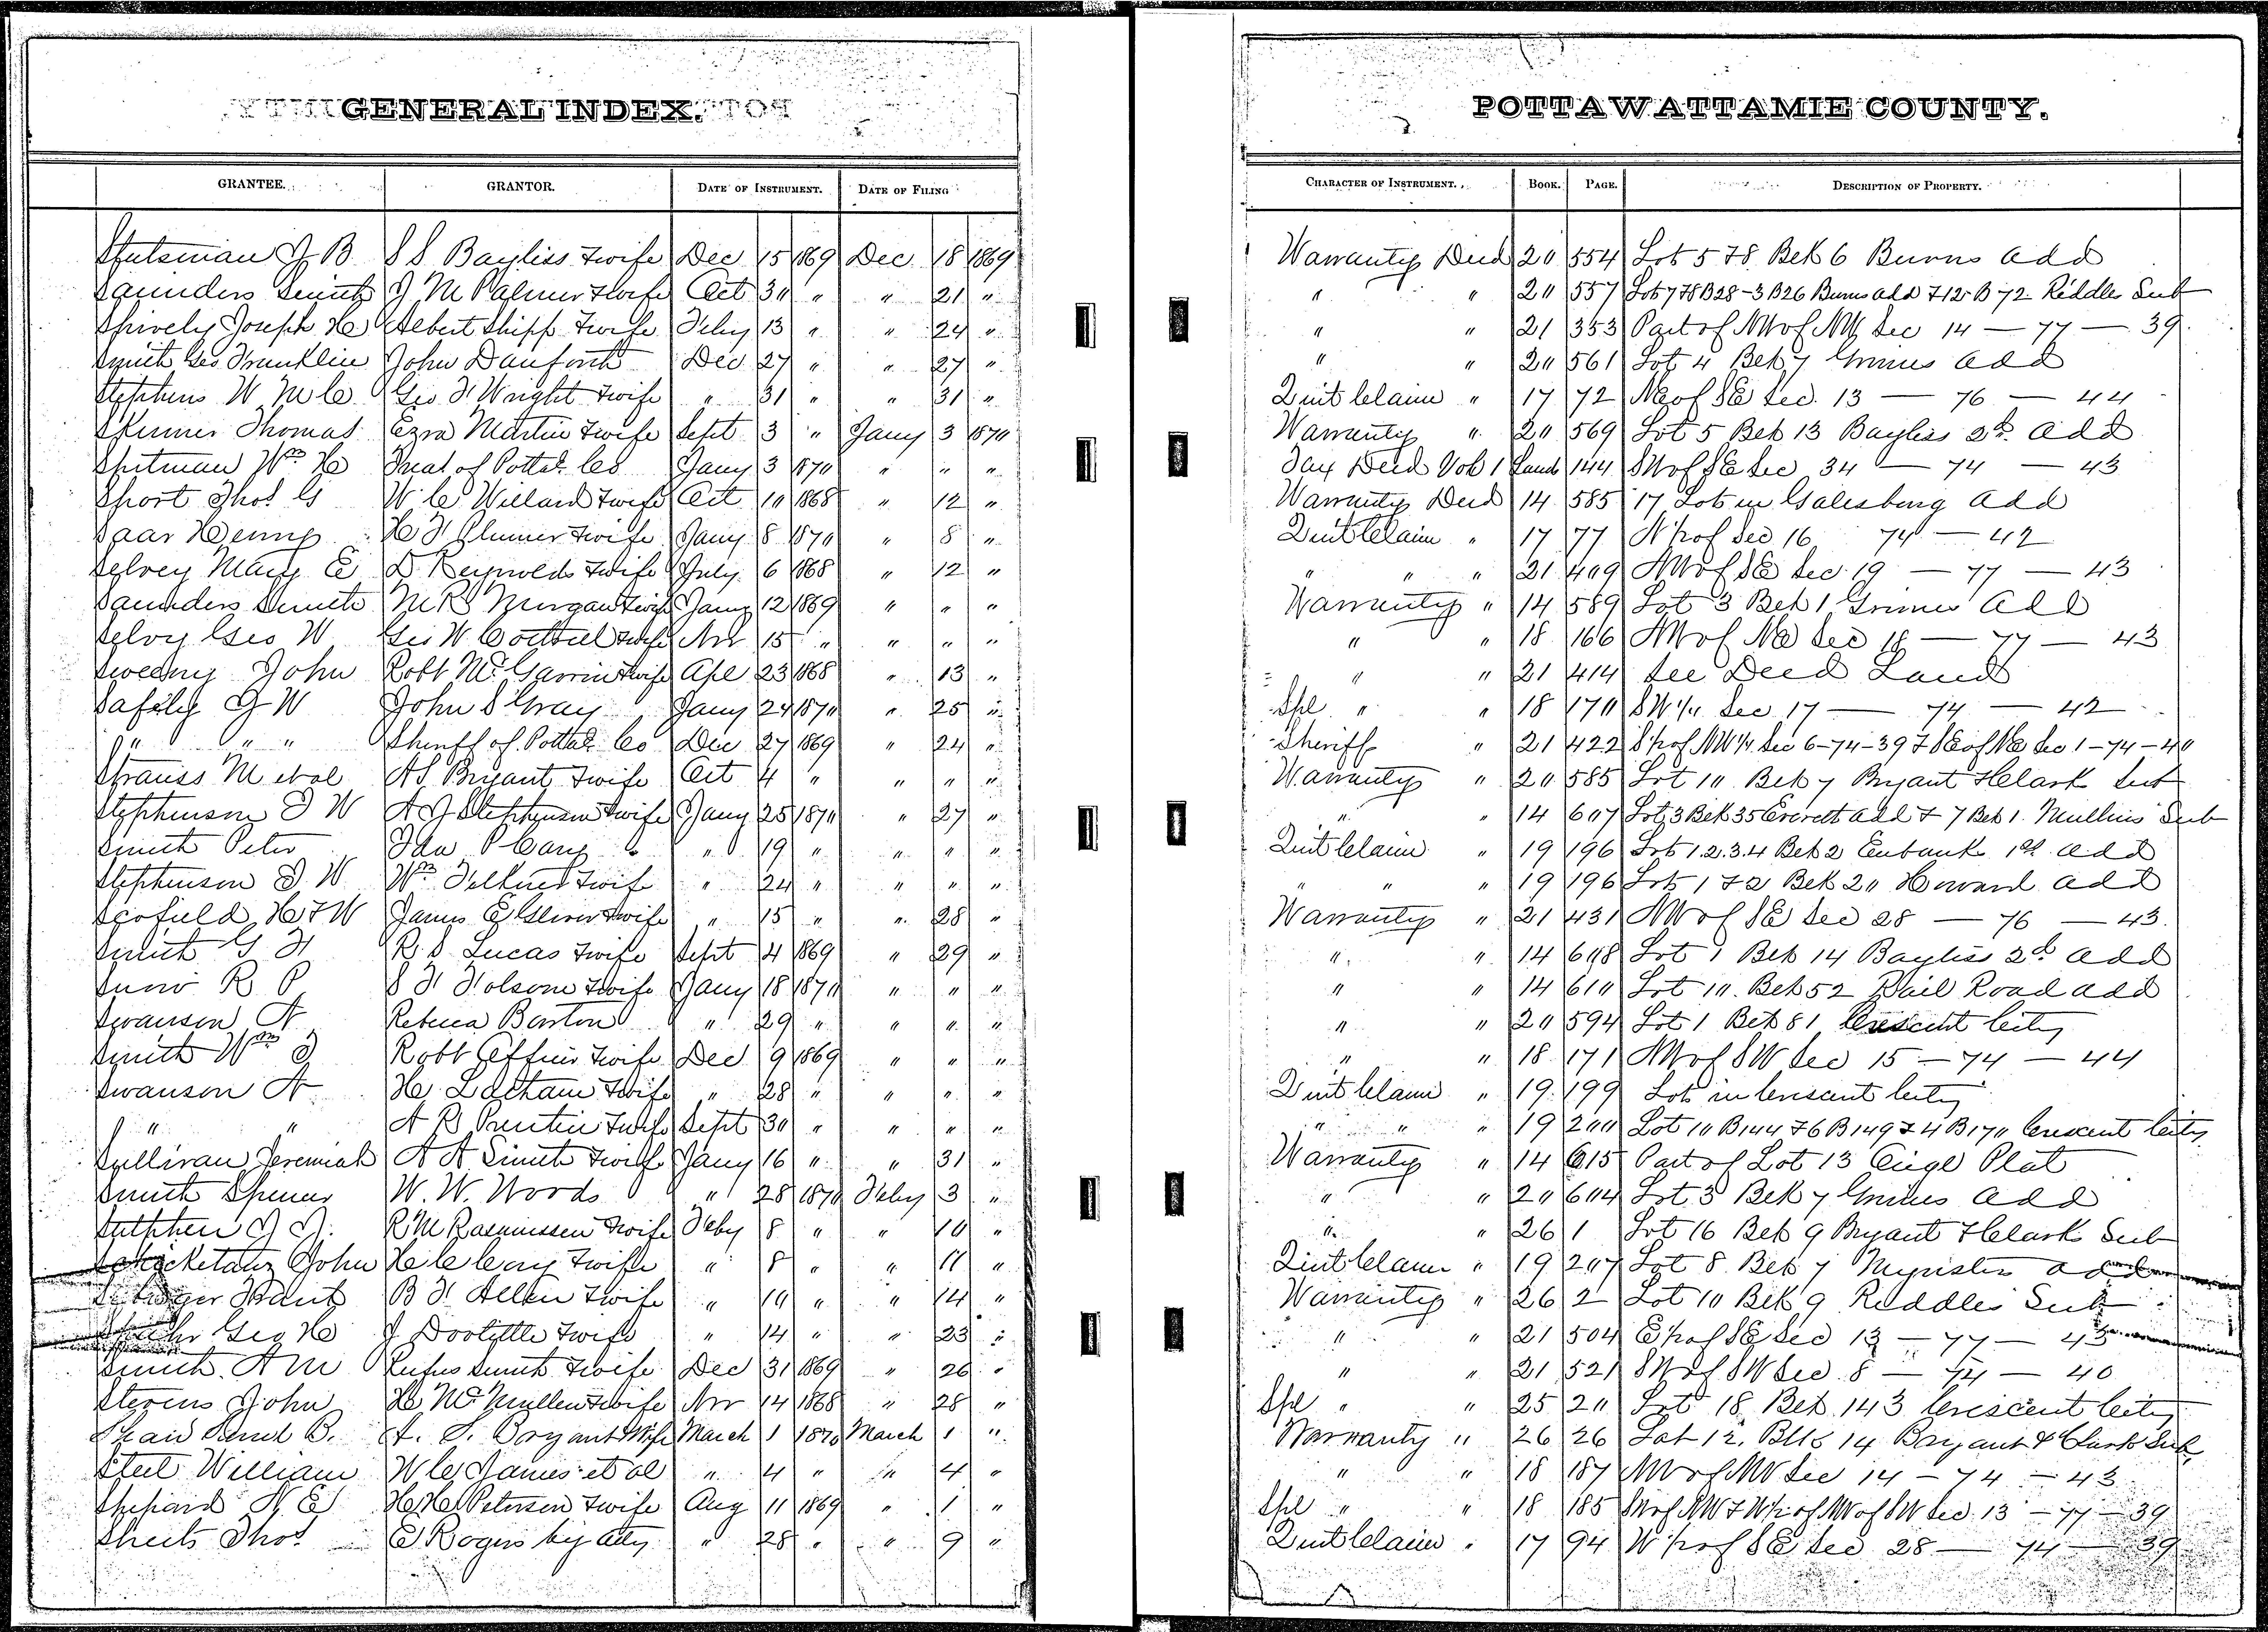 GENERAL INDEX.
POTTAWATTAMIE COUNTY.
GRANTEE. GRANTOR. DATE OF INSTRUMENT. DATE OF FILING CHARACTER OF INSTRUMENT. BOOK. PAGE. DESCRIPTION OF PROPERTY.
Stutsman J B S S Bayliss & wife Dec 15 1869 Dec 18 1869 Warranty Deed 20 554 Lot 5 & 8 Bek 6 Burns add
Saunders Smith J M Palmer & wife Oct 30 " " 21 " " " 20 557 Lot 7 & 8 B28-3 B26 Burns add & 12 B 72 Riddles Sub
Shively Joseph H Albert Shipp & wife Feby 13 " " 24 " " " 21 353 Part of NW of NW Sec 14 — 77 — 39
Smith Geo Franklin John Danforth Dec 27 " " 27 " " " 20 561 Lot 4 Bek 7 Grimes add
Stephens W M C Geo F Wright & wife " 31 " " 31 " Quit Claim " 17 72 NE of SE Sec. 13 — 76 — 44
Skinner Thomas Ezra Martin & wife Sept 3 " Jany 3 1870 Warranty " 20 569 Lot 5 Bek 13 Bayliss 2d. add
Spetman Wm H Treat of Potta. Co Jany 3 1870 " " " Tax Deed Vol 1 Land 144 SW of SE Sec 34 — 74 — 43
Short Thos G W C Willard & wife Oct 10 1868 " 12 " Warranty Deed 14 585 17 Lots in Galesburg add
Saar Henry H F Plumer & wife Jany 8 1870 " 8 " Quit Claim " 17 77 N hof Sec 16 74 — 42
Selvey Mary E D Reynolds & wife July 6 1868 " 12 " " " " 21 409 NW of SE Sec. 19 — 77 — 43
Saunders Smith M R Morgan & wife Jany 12 1869 " " " Warranty " 14 589 Lot 3 Bek 1 Grimes add
Selvy Geo W Geo W Cottrell & wife Nov 15 " " " " " " 18 166 NW of NE Sec 18 — 77 — 43
Sweeny John Robt McGavrin & wife Apl 23 1868 " 13 " " " 21 414 See Deed Lands
Safely J W John S Gray Jany 24 1870 " 25 " Spl " " 18 170 SW 1/4 Sec 17 — 74 — 42
" " " Sheriff of Potta. Co Dec 27 1869 " 24 " Sheriff " 21 422 S hof NW 1/4 Sec 6-74-39 & SE of NE Sec 1-74-40
Strauss M et al A S Bryant & wife Oct 4 " " " " Warranty " 20 585 Lot 10 Bek 7 Bryant & Clark Sub
Stephenson D W A J Stephenson & wife Jany 25 1870 " 27 " " " 14 607 Lot 3 Bek 35 Everett add & 7 Bek 1. Mullins Sub
Smith Peter Ida P Cary " 19 " " " " Quit Claim " 19 196 Lots 1.2.3.4 Bek 2 Eubank 1st add
Stephenson D W Wm Felkner & wife " 24 " " " " " " " 19 196 Lots 1 & 2 Bek 20 Howard add
Scofield H & W James E Oliver & wife " 15 " " 28 " Warranty " 21 431 NW of SE Sec 28 — 76 — 43
Smith G F R S Lucas & wife Sept 4 1869 " 29 " " " 14 608 Lot 1 Bek 14 Bayliss 2d add
Snow R P S F Folsom & wife Jany 18 1870 " " " " " 14 610 Lot 10. Bek 52 Rail Road add
Swanson A Rebeca Barton " 29 " " " " " " 20 594 Lot 1 Bek 81 Crescent City
Smith Wm J Robt Jeffries & wife Dec 9 1869 " " " " " 18 171 NW of SW Sec 15 — 74 — 44
Swanson A H. Latham & wife " 28 " " " " Quit Claim " 19 199 Lots in Crescent City
" " A B Prentice & wife Sept 30 " " " " " " " 19 200 Lot 10 B144 & 6 B149 & 4 B170 Crescent City
Sullivan Jeremiah A A Smith & wife Jany 16 " " 31 " Warranty " 14 615 Part of Lot 13 Orige Plat
Smith Spencer W. W. Woods " 28 1870 Feby 3 " " " 20 604 Lot 3 Bek 7 Grimes add
Sutphen J J. R M Rasmussen & wife Feby 8 " " 10 " " " 26 1 Lot 16 Bek 9 Bryant & Clark Sub
John H C Cary & wife " 8 " " 11 " Quit Claim " 19 207 Lot 8 Bek 7 Mynster add
B F Allen & wife " 10 " " 14 " Warranty " 26 2 Lot 10 Bek 9 Riddles Sub
Geo H J Doolittle & wife " 14 " " 23 : " " 21 504 E hof SE Sec 13 — 77 — 43
Smith. A M Rufus Smith & wife Dec 31 1869 " 26 " " " 21 521 SW of SW Sec. 8 — 74 — 40
Stevens John H McMullen & wife Nov 14 1868 " 28 " Spl " " 25 20 Lot 18 Bek 143 Crescent City
B. A. S. Bryant & Wife March 1 1870 March 1 " Warranty " 26 26 Lot 12, Blk 14 Bryant & Clark Sub
Steel William W C James et al " 4 " " 4 " " " 18 187 NW of NW Sec 14 — 74 — 43
Shepard N E H H Peterson & wife Aug 11 1869 " 1 " Spl " " 18 185 SW of NW & W h of NW of SW Sec. 13 — 77 — 39
Sheets Thos E Rogers by atty " 28 " " 9 " Quit Claim " 17 94 W hof SE Sec 28 — 74 — 39